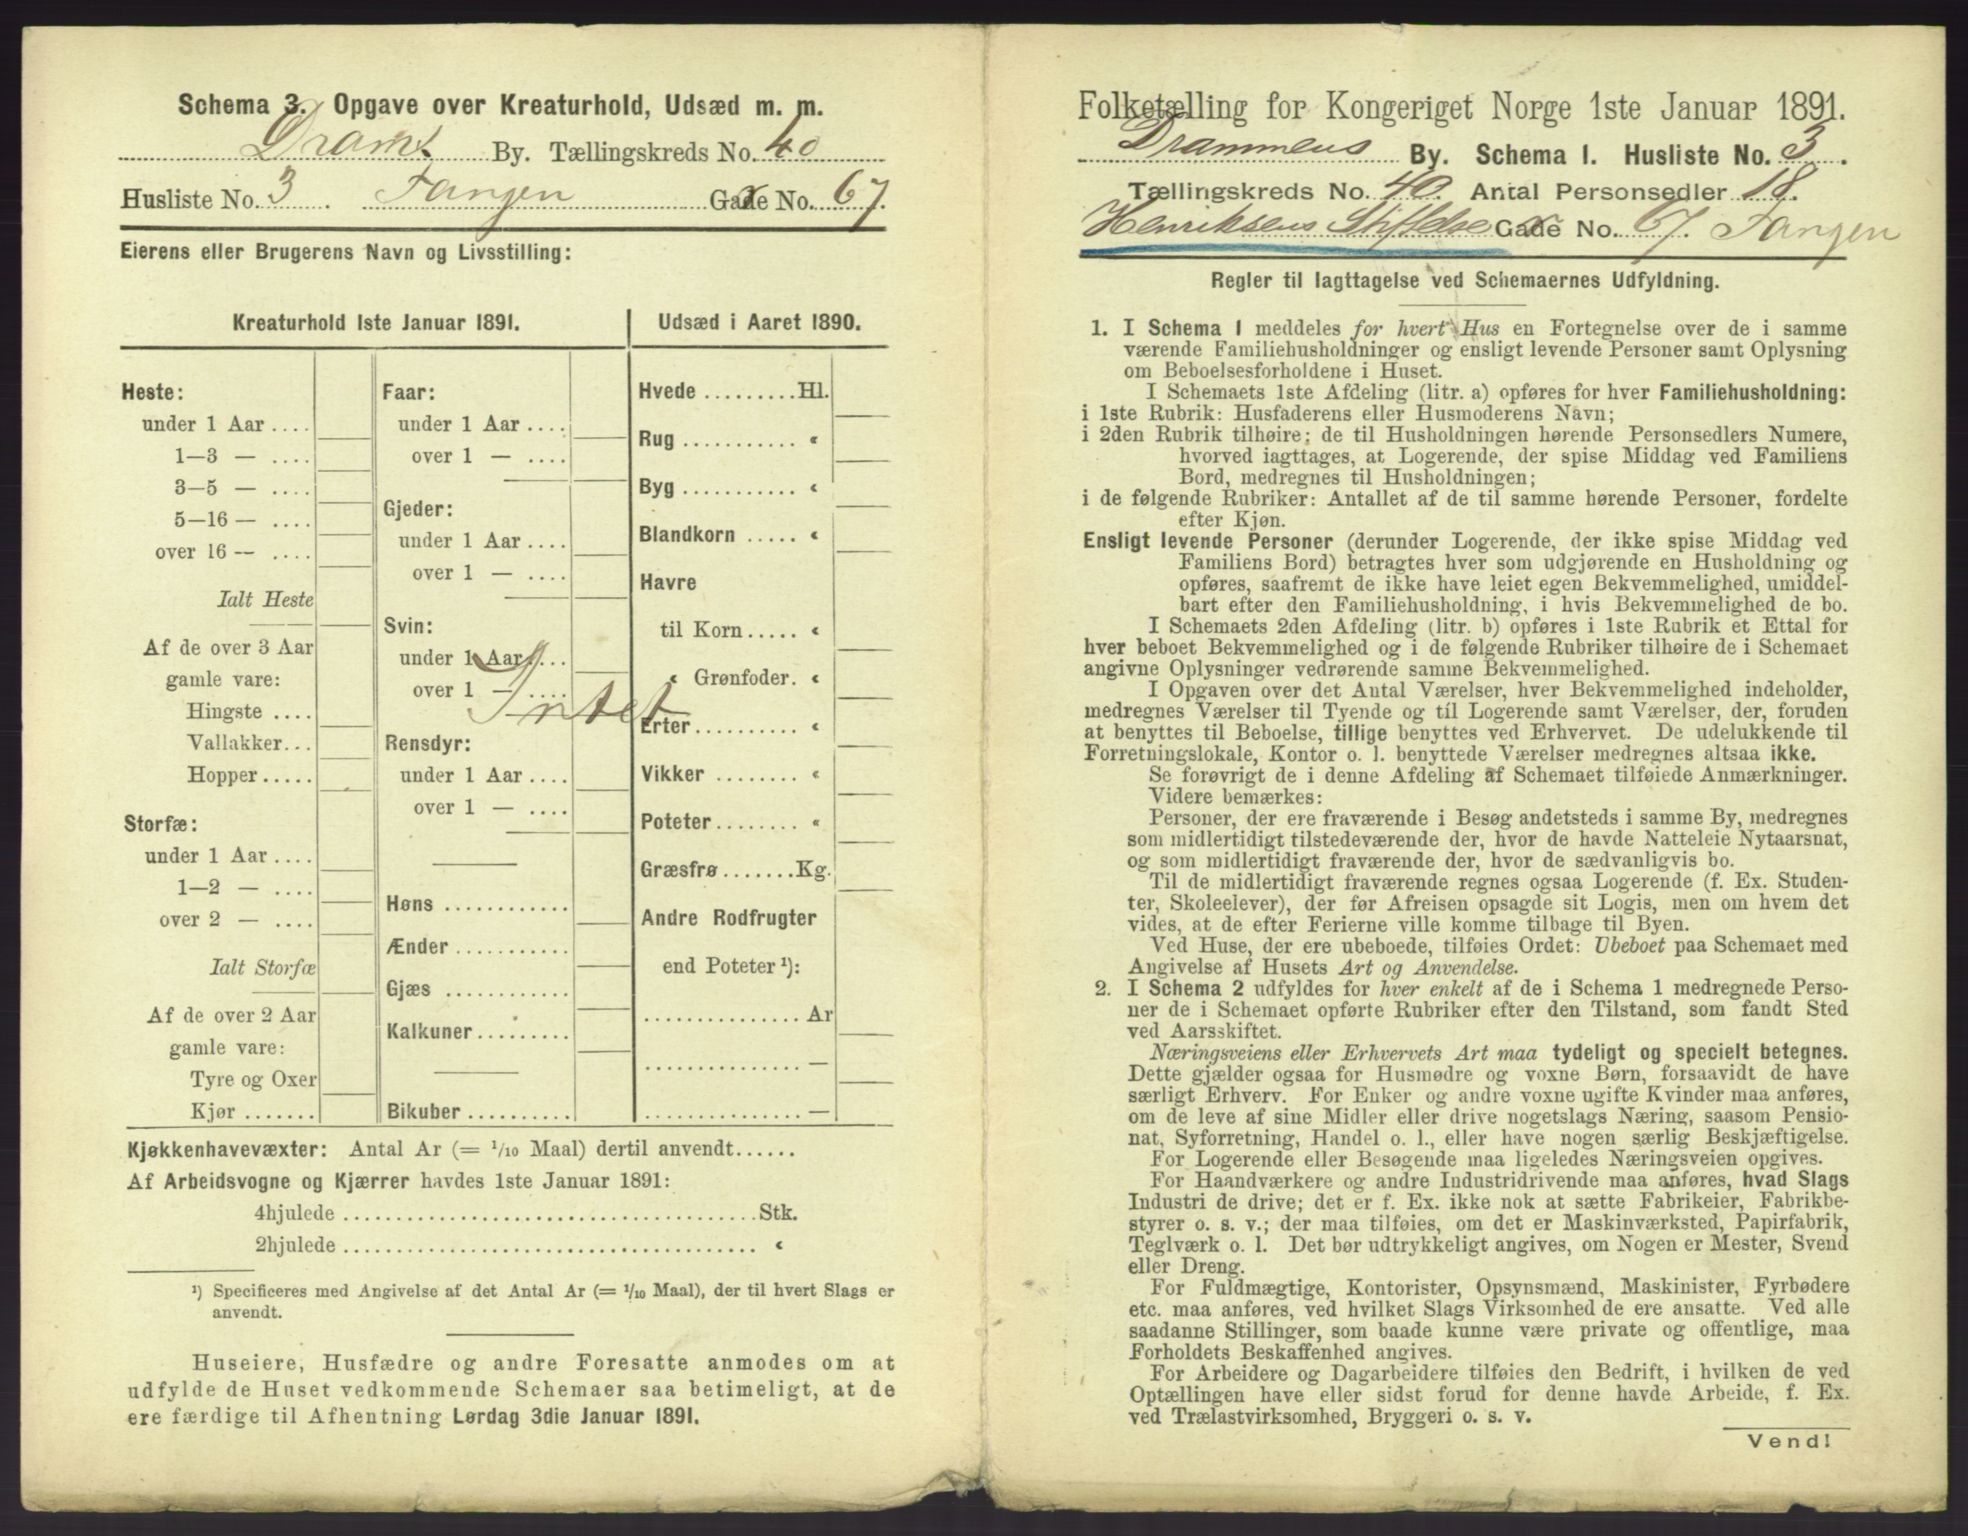 Schema 3. Opgave over Kreaturhold, Udsæd m. m.
Dramᵗ By. Tællingskreds No. 40
Husliste No. 3. Tangen Gade No. 67.
Eierens eller Brugerens Navn og Livsstilling:
Kreaturhold 1ste Januar 1891.
Heste:
under 1 Aar ....
1—3 — ....
3—5 — ....
5—16 — ....
over 16 — ....
Ialt Heste
Af de over 3 Aar
gamle vare:
Hingste ....
Vallakker...
Hopper .....
Storfæ:
under 1 Aar ....
1—2 — ....
over 2 — ....
Ialt Storfæ
Af de over 2 Aar
gamle vare:
Tyre og Oxer
Kjør .......
Faar:
under 1 Aar ....
over 1 — ....
Gjeder:
under 1 Aar ....
over 1 — ....
Svin:
under 1 Aar ....
over 1 — ....
Intet
Rensdyr:
under 1 Aar ....
over 1 — ....
Høns ............
Ænder ...........
Gjæs ............
Kalkuner .........
Bikuber ..........
Udsæd i Aaret 1890.
Hvede ......... Hl.
Rug ........... «
Byg ........... «
Blandkorn ..... «
Havre
til Korn ..... «
« Grønfoder. «
Erter .......... «
Vikker ........ «
Poteter ........ «
Græsfrø ....... Kg.
Andre Rodfrugter
end Poteter ¹):
............... Ar
............... —
............... —
Kjøkkenhavevæxter: Antal Ar (= 1/10 Maal) dertil anvendt......
Af Arbeidsvogne og Kjærrer havdes 1ste Januar 1891:
4hjulede ........................................ Stk.
2hjulede ........................................ «
¹) Specificeres med Angivelse af det Antal Ar (= 1/10 Maal), der til hvert Slags er
anvendt.
Huseiere, Husfædre og andre Foresatte anmodes om at
udfylde de Huset vedkommende Schemaer saa betimeligt, at de
ere færdige til Afhentning Lørdag 3die Januar 1891.
Folketælling for Kongeriget Norge 1ste Januar 1891.
Drammens By. Schema 1. Husliste No. 3.
Tællingskreds No. 40. Antal Personsedler 18.
Henriksens Stiftelse Gade No. 67. Tangen
Regler til Iagttagelse ved Schemaernes Udfyldning.
1. I Schema 1 meddeles for hvert Hus en Fortegnelse over de i samme
værende Familiehusholdninger og ensligt levende Personer samt Oplysning
om Beboelsesforholdene i Huset.
I Schemaets 1ste Afdeling (litr. a) opføres for hver Familiehusholdning:
i 1ste Rubrik: Husfaderens eller Husmoderens Navn;
i 2den Rubrik tilhøire: de til Husholdningen hørende Personsedlers Numere,
hvorved iagttages, at Logerende, der spise Middag ved Familiens
Bord, medregnes til Husholdningen;
i de følgende Rubriker: Antallet af de til samme hørende Personer, fordelte
efter Kjøn.
Ensligt levende Personer (derunder Logerende, der ikke spise Middag ved
Familiens Bord) betragtes hver som udgjørende en Husholdning og
opføres, saafremt de ikke have leiet egen Bekvemmelighed, umiddel-
bart efter den Familiehusholdning, i hvis Bekvemmelighed de bo.
I Schemaets 2den Afdeling (litr. b) opføres i 1ste Rubrik et Ettal for
hver beboet Bekvemmelighed og i de følgende Rubriker tilhøire de i Schemaet
angivne Oplysninger vedrørende samme Bekvemmelighed.
I Opgaven over det Antal Værelser, hver Bekvemmelighed indeholder,
medregnes Værelser til Tyende og til Logerende samt Værelser, der, foruden
at benyttes til Beboelse, tillige benyttes ved Erhvervet. De udelukkende til
Forretningslokale, Kontor o. l. benyttede Værelser medregnes altsaa ikke.
Se forøvrigt de i denne Afdeling af Schemaet tilføiede Anmærkninger.
Videre bemærkes:
Personer, der ere fraværende i Besøg andetsteds i samme By, medregnes
som midlertidigt tilstedeværende der, hvor de havde Natteleie Nytaarsnat,
og som midlertidigt fraværende der, hvor de sædvanligvis bo.
Til de midlertidigt fraværende regnes ogsaa Logerende (f. Ex. Studen-
ter, Skoleelever), der før Afreisen opsagde sit Logis, men om hvem det
vides, at de efter Ferierne ville komme tilbage til Byen.
Ved Huse, der ere ubeboede, tilføies Ordet: Ubeboet paa Schemaet med
Angivelse af Husets Art og Anvendelse.
2. I Schema 2 udfyldes for hver enkelt af de i Schema 1 medregnede Perso-
ner de i Schemaet opførte Rubriker efter den Tilstand, som fandt Sted
ved Aarsskiftet.
Næringsveiens eller Erhvervets Art maa tydeligt og specielt betegnes.
Dette gjælder ogsaa for Husmødre og voxne Børn, forsaavidt de have
særligt Erhverv. For Enker og andre voxne ugifte Kvinder maa anføres,
om de leve af sine Midler eller drive nogetslags Næring, saasom Pensio-
nat, Syforretning, Handel o. l., eller have nogen særlig Beskjæftigelse.
For Logerende eller Besøgende maa ligeledes Næringsveien opgives.
For Haandværkere og andre Industridrivende maa anføres, hvad Slags
Industri de drive; det er f. Ex. ikke nok at sætte Fabrikeier, Fabrikbe-
styrer o. s. v.; der maa tilføies, om det er Maskinværksted, Papirfabrik,
Teglværk o. l. Det bør udtrykkeligt angives, om Nogen er Mester, Svend
eller Dreng.
For Fuldmægtige, Kontorister, Opsynsmænd, Maskinister, Fyrbødere
etc. maa anføres, ved hvilket Slags Virksomhed de ere ansatte. Ved alle
saadanne Stillinger, som baade kunne være private og offentlige, maa
Forholdets Beskaffenhed angives.
For Arbeidere og Dagarbeidere tilføies den Bedrift, i hvilken de ved
Optællingen have eller sidst forud for denne havde Arbeide, f. Ex.
ved Trælastvirksomhed, Bryggeri o. s. v.
Vend!